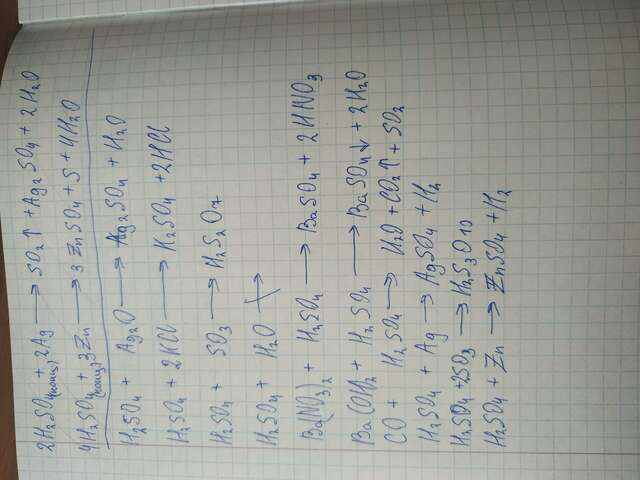 2H₂SO₄(конц) + 2Ag ⟶ SO₂↑ + Ag₂SO₄ + 2H₂O
4H₂SO₄(конц) + 3Zn ⟶ 3ZnSO₄ + S + 4H₂O
H₂SO₄ + Ag₂O ⟶ Ag₂SO₄ + H₂O
H₂SO₄ + 2KCl ⟶ K₂SO₄ + 2HCl
H₂SO₄ + SO₃ ⟶ H₂S₂O₇
H₂SO₄ + H₂O ↛
Ba(NO₃)₂ + H₂SO₄ ⟶ BaSO₄ + 2HNO₃
Ba(OH)₂ + H₂SO₄ ⟶ BaSO₄↓ + 2H₂O
CO + H₂SO₄ ⟶ H₂O + CO₂↑ + SO₂
H₂SO₄ + Ag ⟶ AgSO₄ + H₂
H₂SO₄ + 2SO₃ ⟶ H₂S₃O₁₀
H₂SO₄ + Zn ⟶ ZnSO₄ + H₂